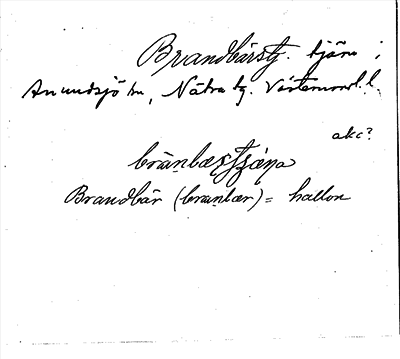 Brandbärstj. tjärn i
Anundsjö sn, Nätra tg. Västernorrl. l.
akc?
brànbæṣtjǽṇa
Brandbär (branbær) = hallon